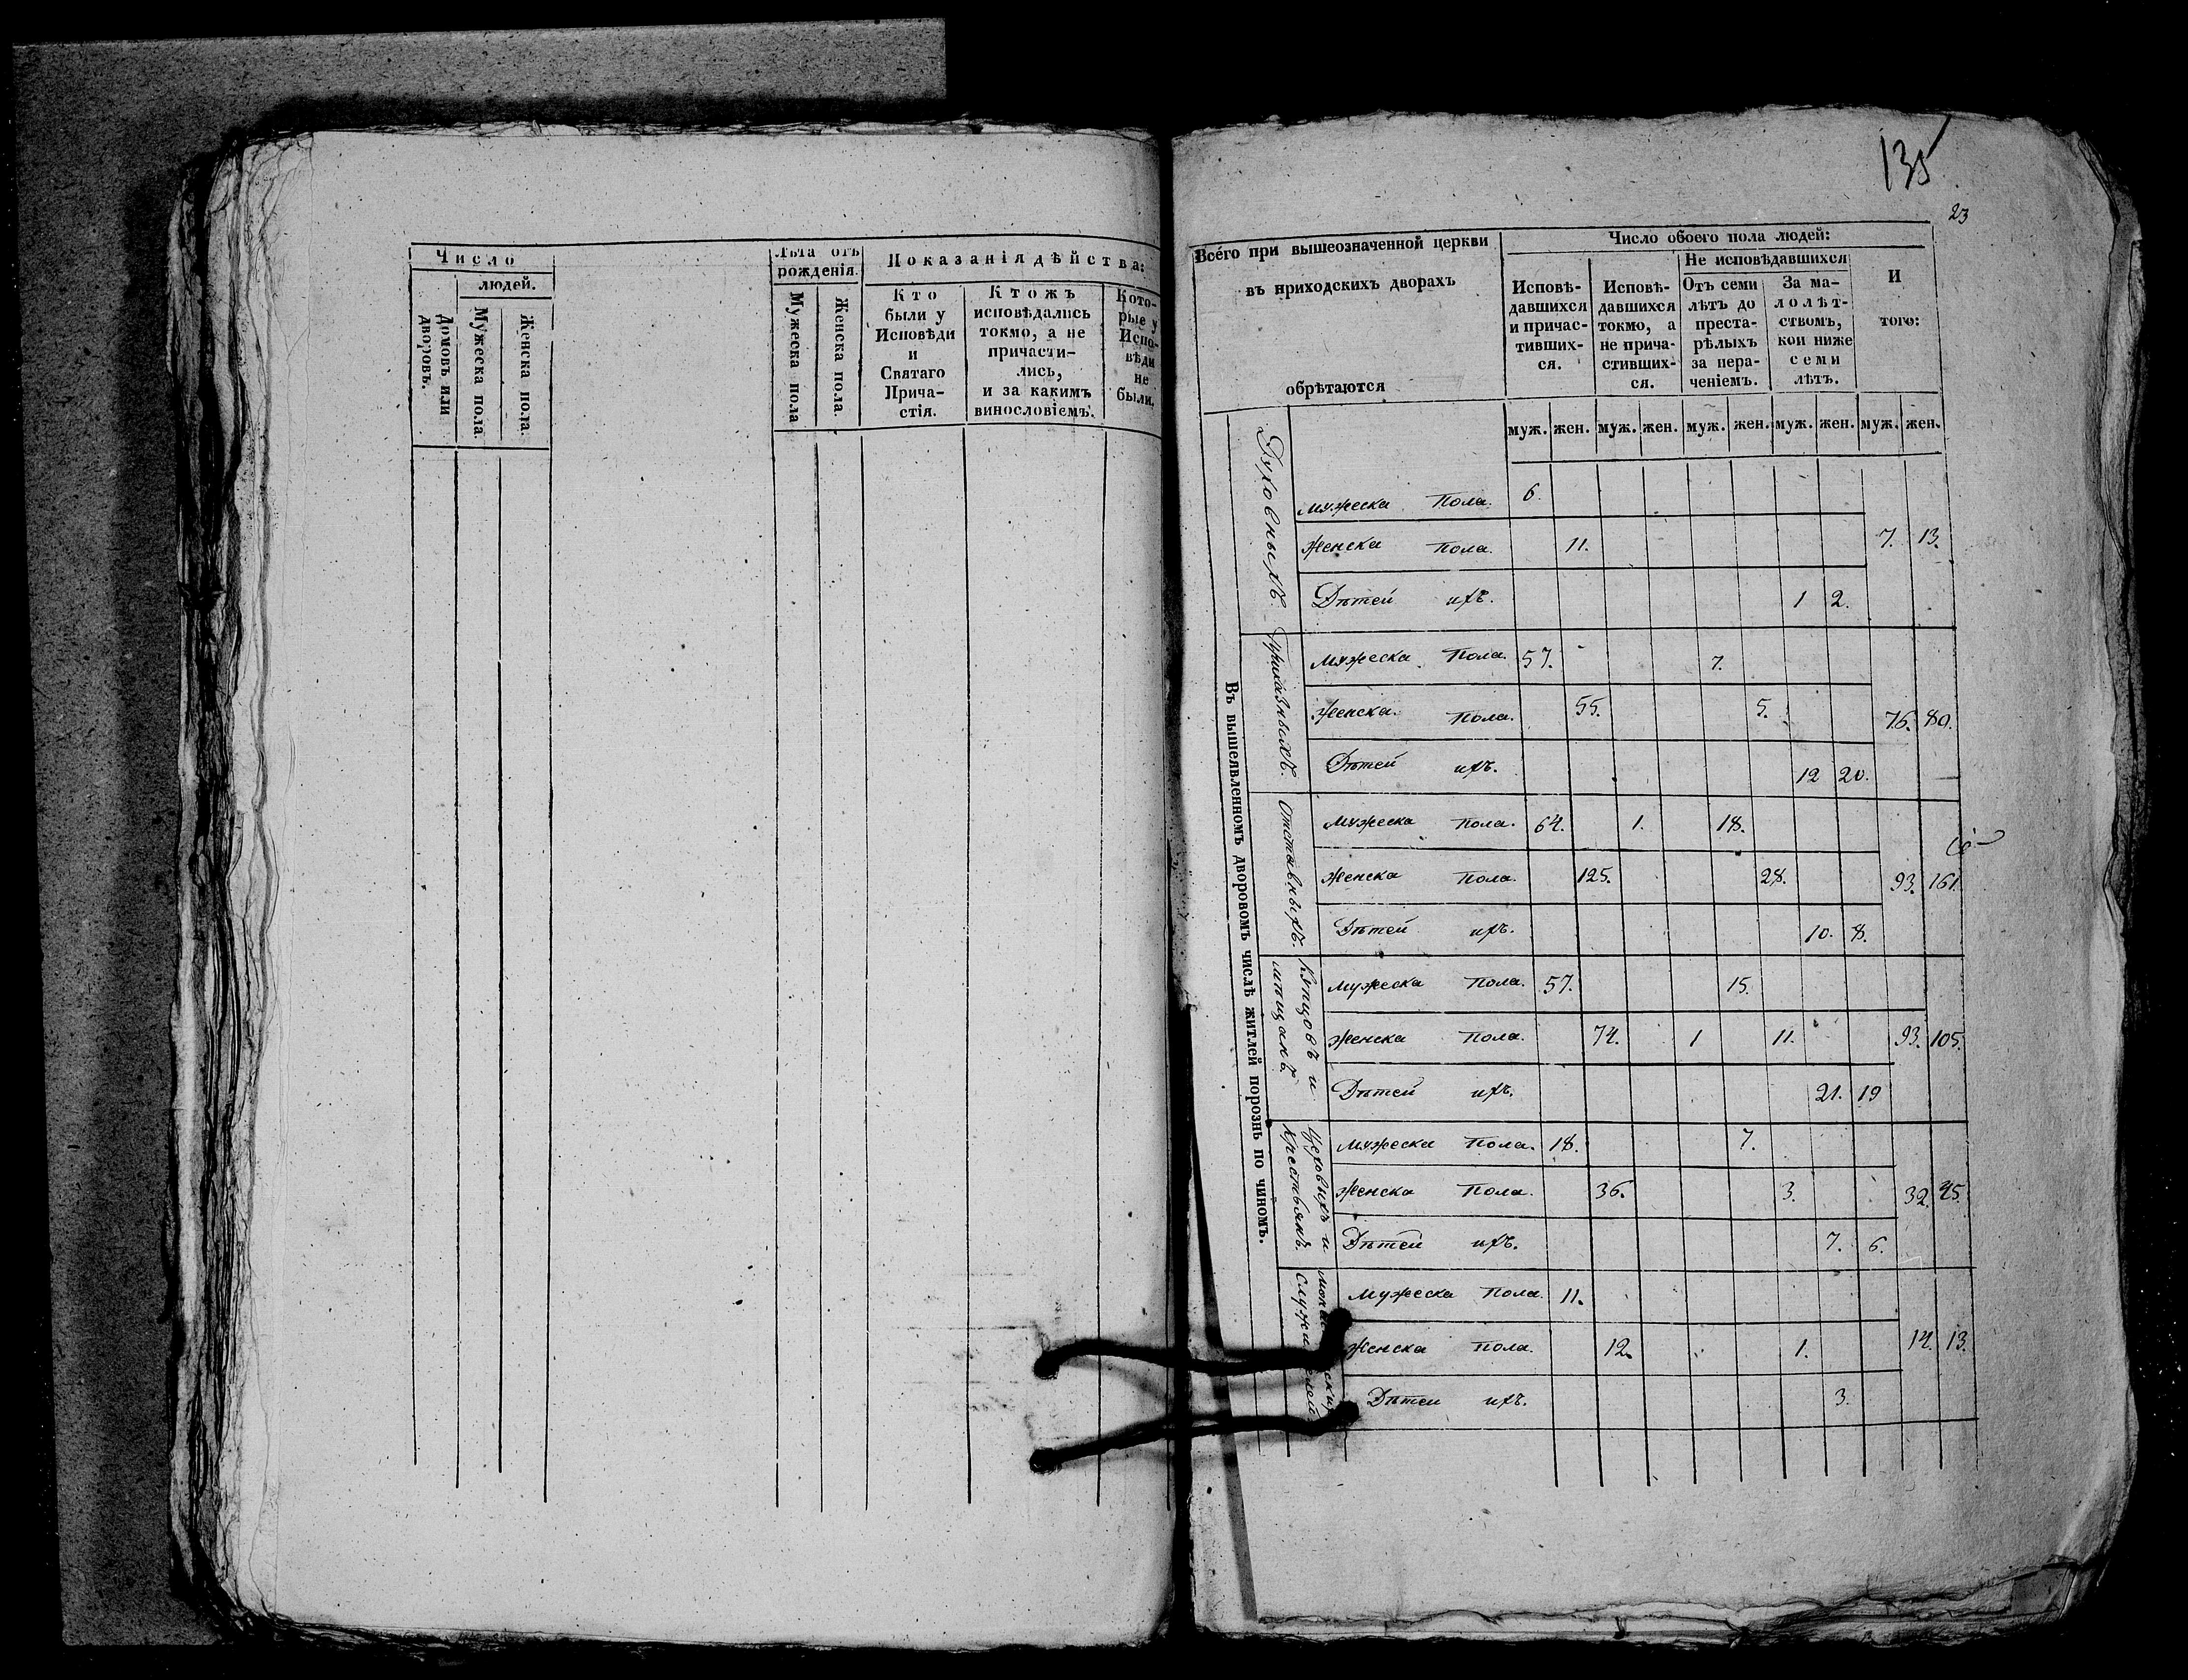 Число
людей.
Домовъ или дворовъ.
Мужеска пола.
Женска пола.
Лѣта отъ
рожденія.
Мужеска пола
Женска пола.
Показанія дѣйства:
Кто
были у
Исповѣди
и
Святаго
Прича-
стія.
Ктожъ
исповѣдались
токмо, а не
причасти-
лись,
и за какимъ
винословіемъ.
Кото-
рые у
Испо-
вѣди
не
были.
135
23
Всего при вышеозначенной церкви
въ приходскихъ дворахъ
обрѣтаются
Число обоего пола людей:
Исповѣ-
давшихся
и причас-
тивших-
ся.
Исповѣ-
давшихся
токмо, а
не прича-
стивших-
ся.
Не исповѣдавшихся
Отъ семи
лѣтъ до
преста-
рѣлыхъ
за нера-
ченіемъ.
За ма-
лолѣт-
ствомъ,
кои ниже
семи
лѣтъ.
И
того:
муж. жен. муж. жен. муж. жен. муж. жен. муж. жен.
Въ вышеявленномъ дворовомъ числѣ житлей порознь по чиномъ.
Духовныхъ.
Мужеска Пола. 6.
Женска Пола. 11. 7. 13.
Дѣтей ихъ. 1 2.
Приказныхъ.
Мужеска Пола 57. 7.
Женска. Пола. 55. 5. 76. 80.
Дѣтей ихъ. 12 20.
Отставныхъ.
Мужеска Пола. 64. 1. 18.
Женска Пола. 125. 28. 93. 161.
Дѣтей ихъ. 10. 8.
Купцовъ и
мѣщанъ.
Мужеска Пола. 57. 15.
Женска Пола. 74. 1 11. 93. 105.
Дѣтей ихъ. 21. 19
Цеховыхъ и
Крестьянъ.
Мужеска Пола. 18. 7.
Женска Пола. 36. 3. 32. 45.
Дѣтей ихъ. 7. 6.
Мужеска Пола. 11.
Женска Пола. 12. 1. 14. 13.
Дѣтей ихъ. 3.